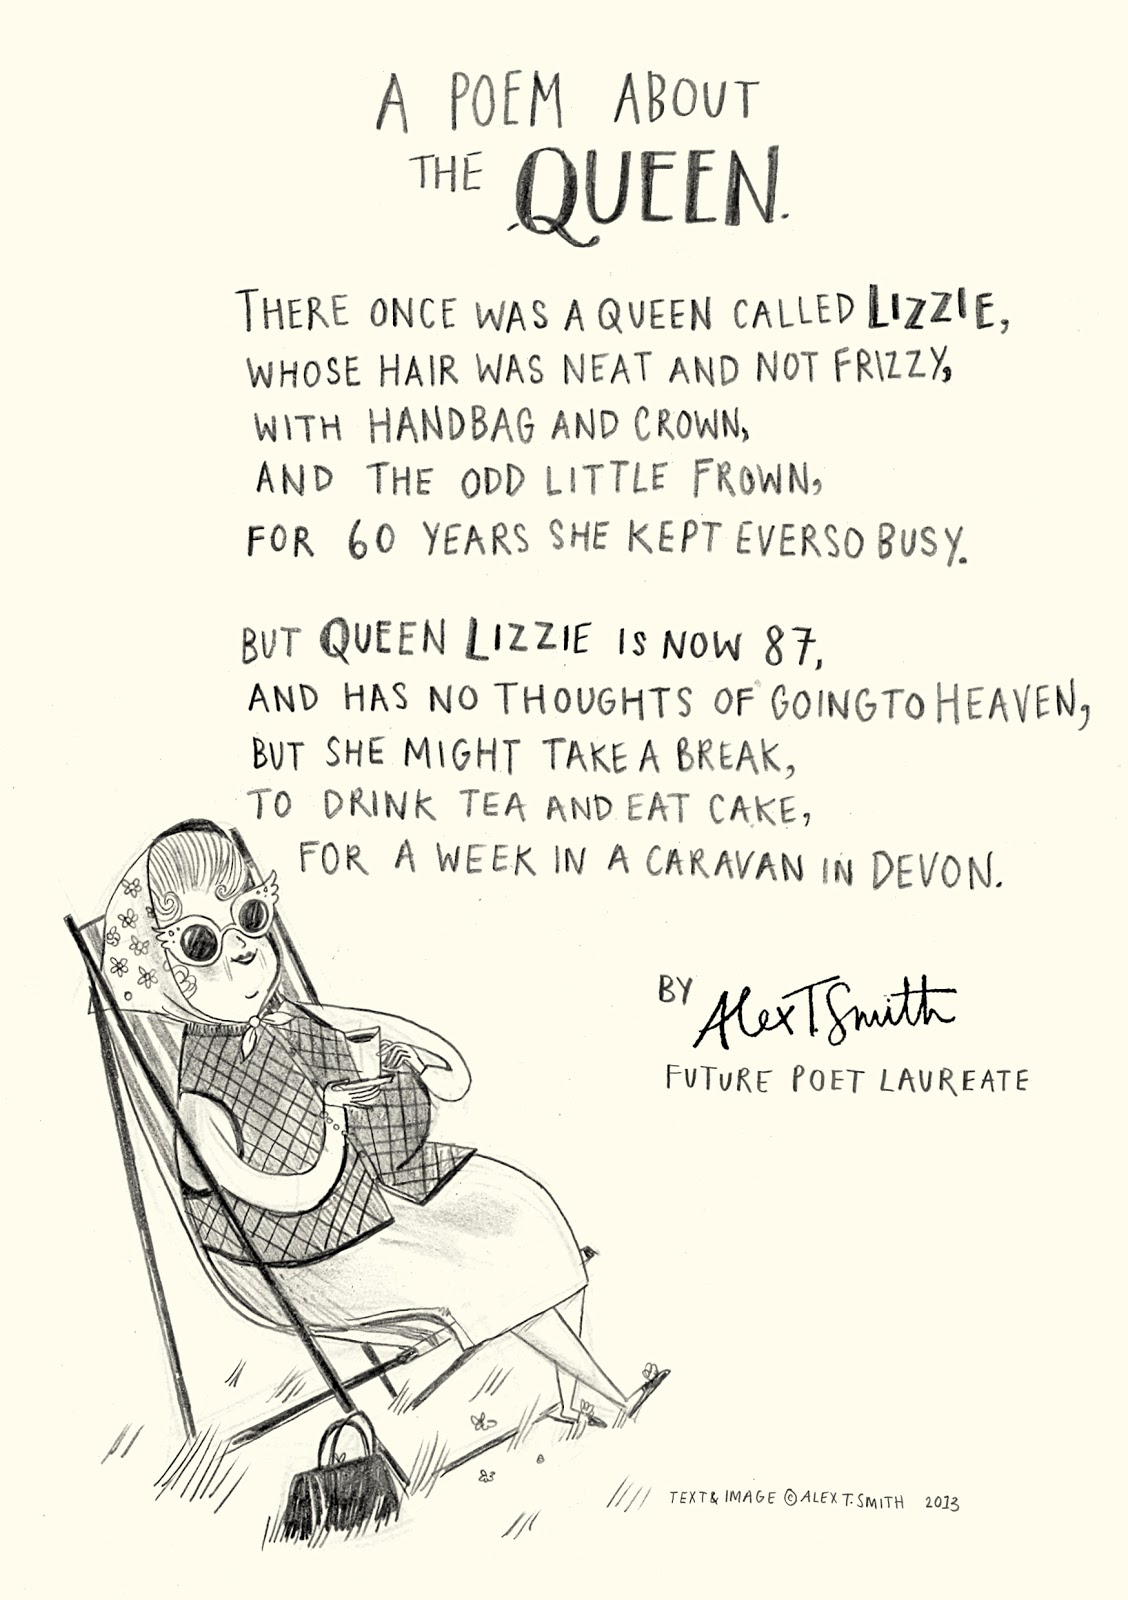 A POEM ABOUT
THE QUEEN.
THERE ONCE WAS A QUEEN CALLED LIZZIE,
WHOSE HAIR WAS NEAT AND NOT FRIZZY,
WITH HANDBAG AND CROWN,
AND THE ODD LITTLE FROWN,
FOR 60 YEARS SHE KEPT EVERSO BUSY.
BUT QUEEN LIZZIE IS NOW 87,
AND HAS NO THOUGHTS OF GOING TO HEAVEN,
BUT SHE MIGHT TAKE A BREAK,
TO DRINK TEA AND EAT CAKE,
FOR A WEEK IN A CARAVAN IN DEVON.
BY Alex T Smith
FUTURE POET LAUREATE
TEXT & IMAGE © ALEX T. SMITH 2013